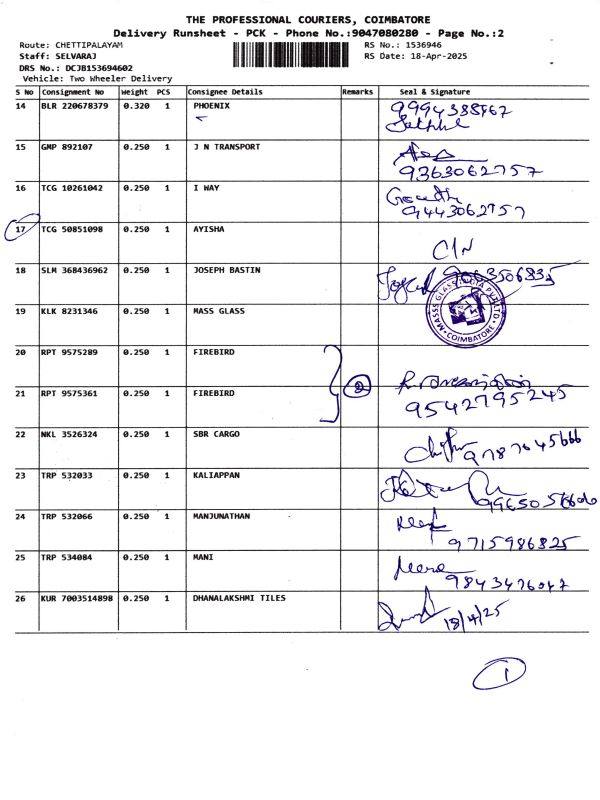 THE PROFESSIONAL COURIERS, COIMBATORE
Delivery Runsheet - PCK - Phone No.:9047080280 - Page No.:2
Route: CHETTIPALAYAM RS No.: 1536946
Staff: SELVARAJ RS Date: 18-Apr-2025
DRS No.: DCJB153694602
Vehicle: Two Wheeler Delivery
S No Consignment No Weight PCS Consignee Details Remarks Seal & Signature
14 BLR 220678379 0.320 1 PHOENIX
15 GMP 892107 0.250 1 J N TRANSPORT
9363062757
16 TCG 10261042 0.250 1 I WAY
9443062757
17 TCG 50851098 0.250 1 AYISHA
C/N
18 SLM 368436962 0.250 1 JOSEPH BASTIN
19 KLK 8231346 0.250 1 MASS GLASS
COIMBATORE
20 RPT 9575289 0.250 1 FIREBIRD
2
21 RPT 9575361 0.250 1 FIREBIRD
9542795245
22 NKL 3526324 0.250 1 SBR CARGO
9787645666
23 TRP 532033 0.250 1 KALIAPPAN
24 TRP 532066 0.250 1 MANJUNATHAN
9715986825
25 TRP 534084 0.250 1 MANI
26 KUR 7003514898 0.250 1 DHANALAKSHMI TILES
18/4/25
1